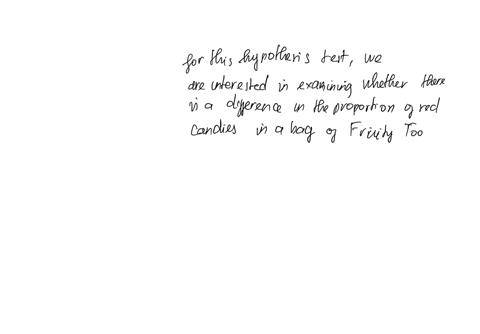 for this hypothesis test, we
are interested in examining whether there
is a difference in the proportion of red
candies in a bag of Fruity Too